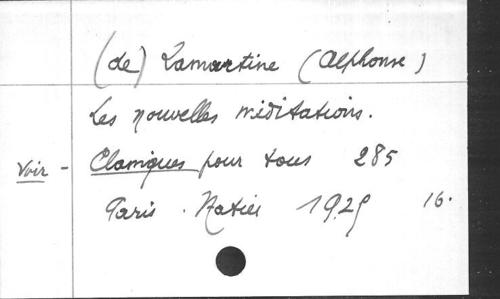 (de) Lamartine (Alphonse)
Les nouvelles méditations.
Voir - Classiques pour tous 285
Paris. Hatier 1925 16.